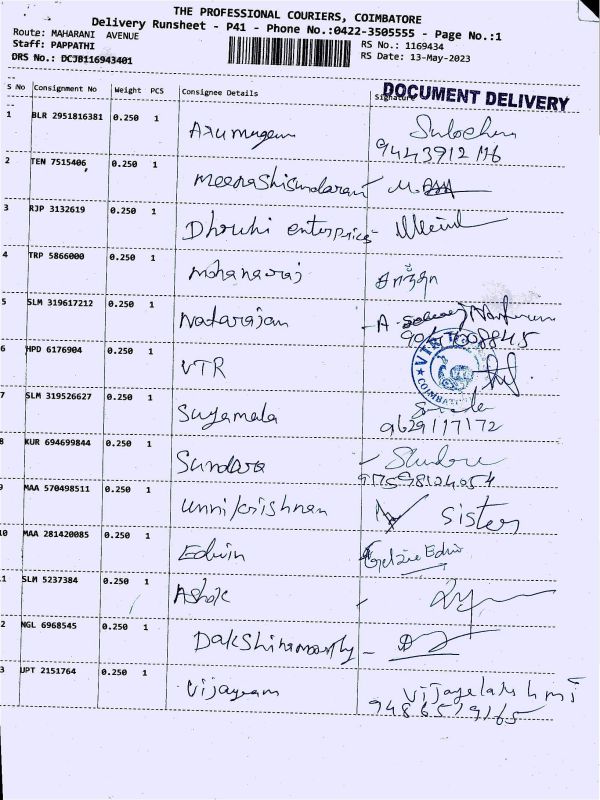 THE PROFESSIONAL COURIERS, COIMBATORE
Delivery Runsheet - P41 - Phone No.:0422-3505555 - Page No.:1
Route: MAHARANI AVENUE
RS No.: 1169434
Staff: PAPPATHI
RS Date: 13-May-2023
DRS No.: DCJB116943401
S No Consignment No Weight PCS Consignee Details Signature
DOCUMENT DELIVERY
1 BLR 2951816381 0.250 1 Arumugam
2 TEN 7515406 0.250 1 Meenashisundaram
3 RJP 3132619 0.250 1 Dhruhi enterprices
4 TRP 5866000 0.250 1 Mohanaraj
5 SLM 319617212 0.250 1 Nadarajan
6 HPD 6176904 0.250 1 VTR
7 SLM 319526627 0.250 1 Suyamala 9629117172
8 KUR 694699844 0.250 1 Sundara
9 MAA 570498511 0.250 1 unnikrishnan Sister
10 MAA 281420085 0.250 1 Edwin
1 SLM 5237384 0.250 1 Ashok
2 NGL 6968545 0.250 1 Dakshinamoorthy
3 UPT 2151764 0.250 1 Vijayram Vijayelakshmi
9486519165